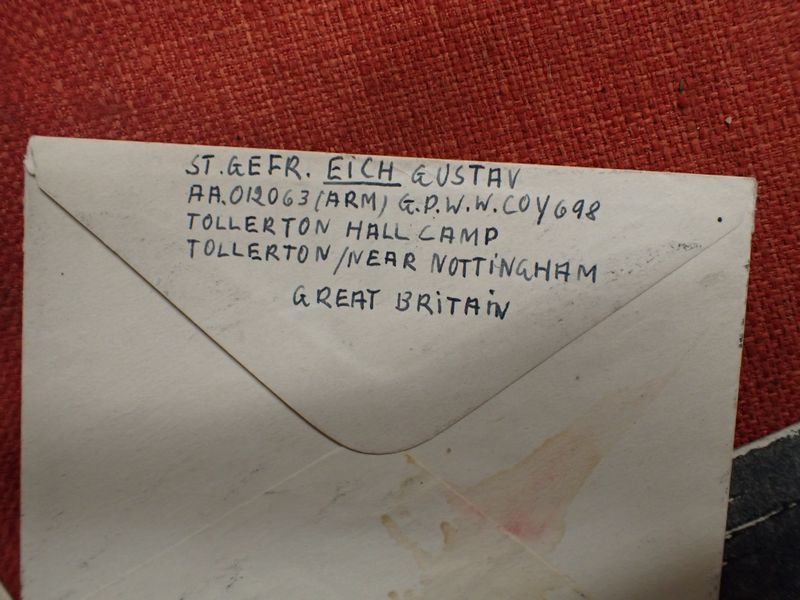 ST. GEFR. EICH GUSTAV
AA.012063 (ARM) G.P.W.W. COY 698
TOLLERTON HALL CAMP
TOLLERTON/NEAR NOTTINGHAM
GREAT BRITAIN